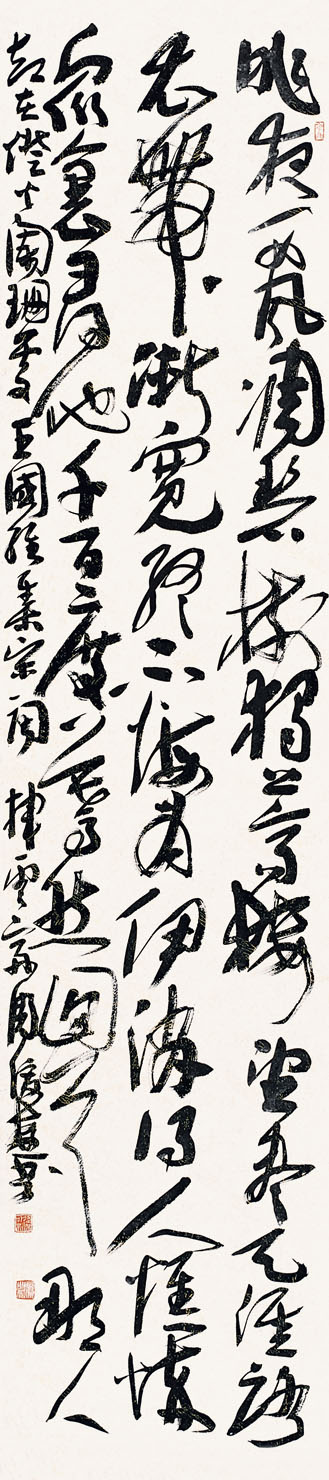 昨夜西風凋碧樹獨上高樓望盡天涯路
衣帶漸寬終不悔為伊消得人憔悴
眾裏尋他千百度驀然迴首那人
却在燈火闌珊處 王國維集宋詞 揮雲齋周俊杰書